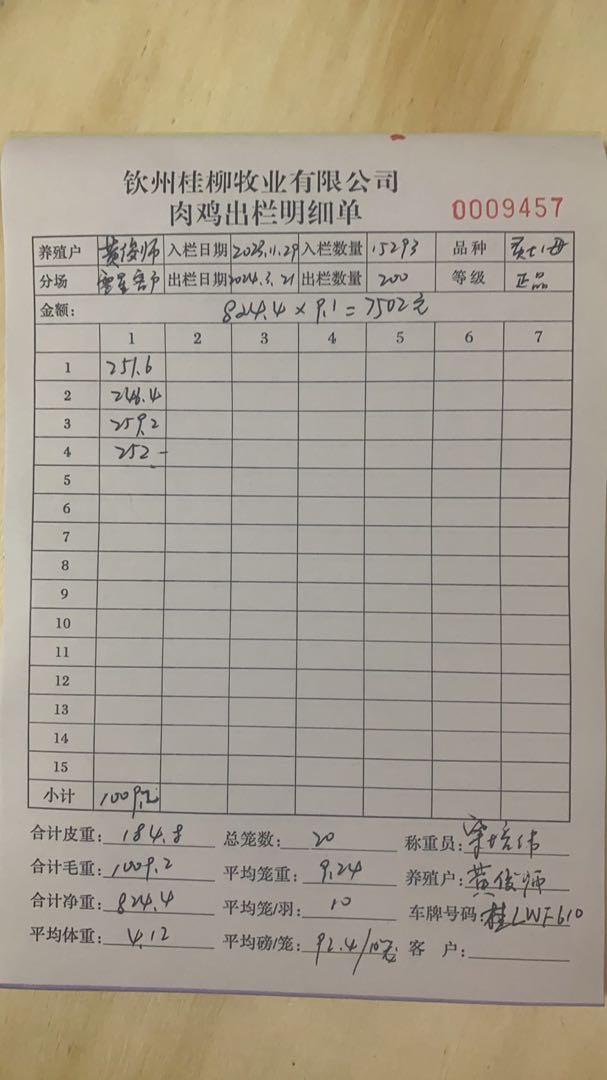 钦州桂柳牧业有限公司
肉鸡出栏明细单 0009457
养殖户 黄俊师 入栏日期 2023.11.29 入栏数量 15293 品种
分场 零星客户 出栏日期 2024.3.21 出栏数量 200 等级 正品
金额: 824.4 × 9.1 = 7502元
1 2 3 4 5 6 7
1 251.6
2 246.4
3 259.2
4 252 -
5
6
7
8
9
10
11
12
13
14
15
小计 1009.2
合计皮重: 184.8 总笼数: 20 称重员: 培伟
合计毛重: 1009.2 平均笼重: 9.24 养殖户: 黄俊师
合计净重: 824.4 平均笼/羽: 10 车牌号码: 桂LWF610
平均体重: 4.12 平均磅/笼: 92.4/10笼 客 户: